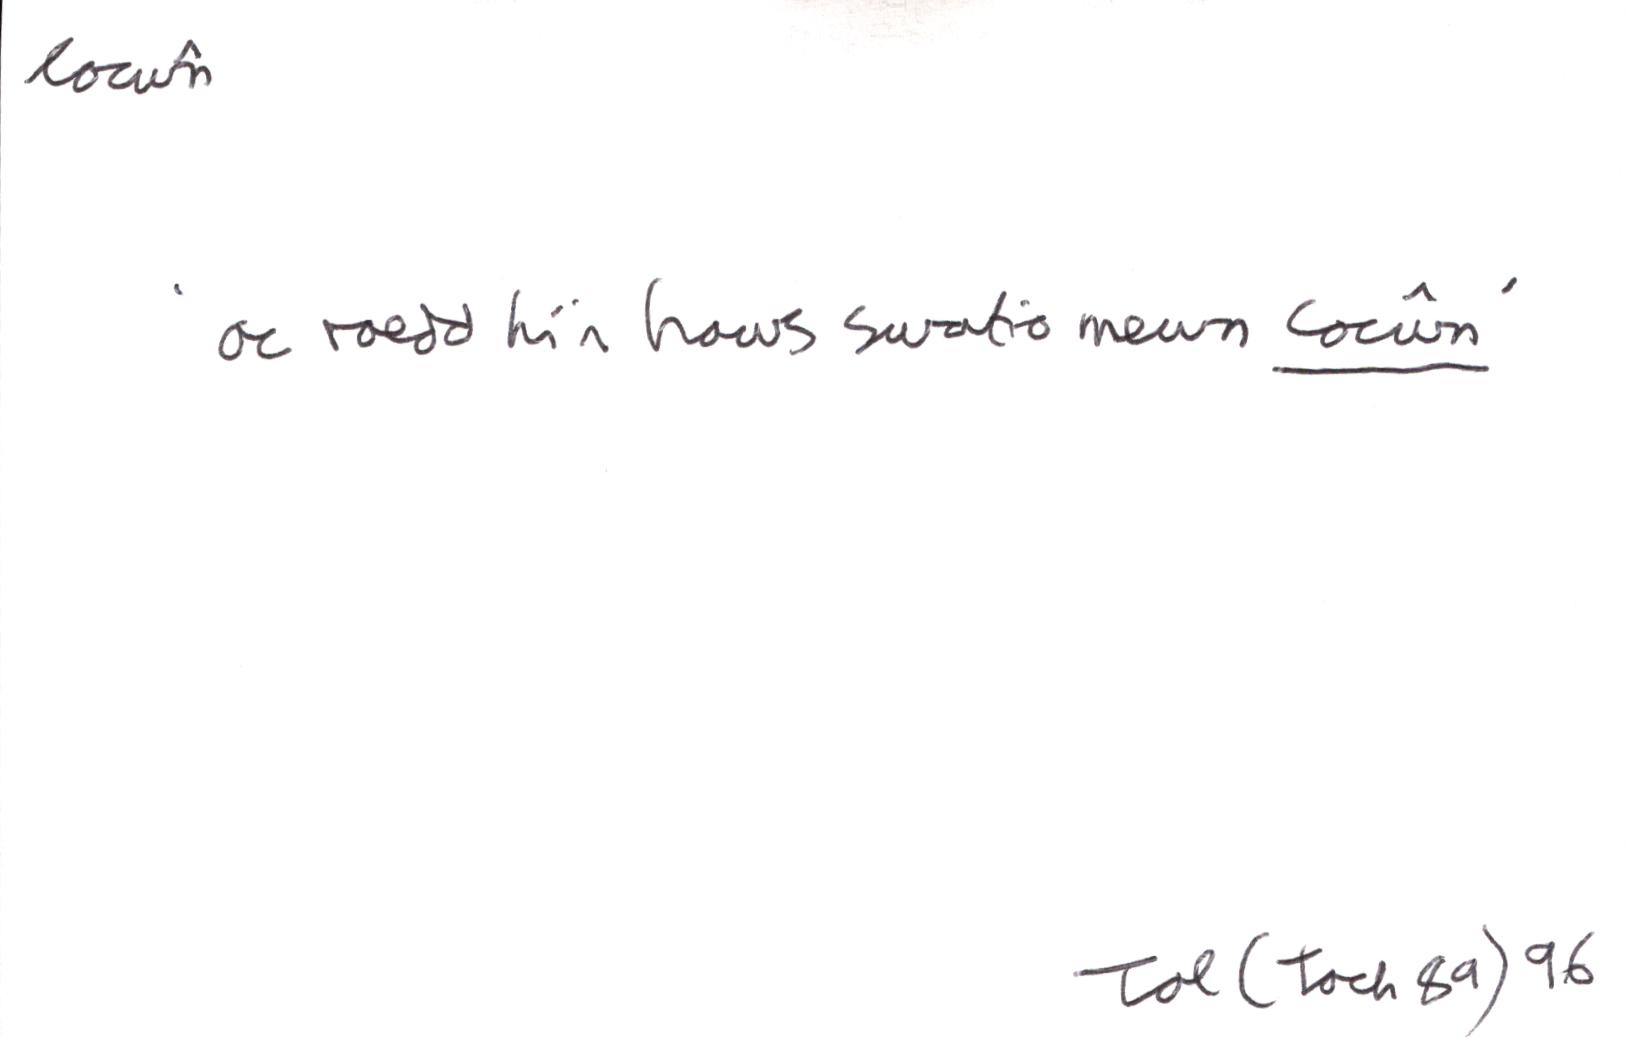 cocŵn
'ac roedd hi'n haws swatio mewn cocŵn'
Tal (Tach 89) 96